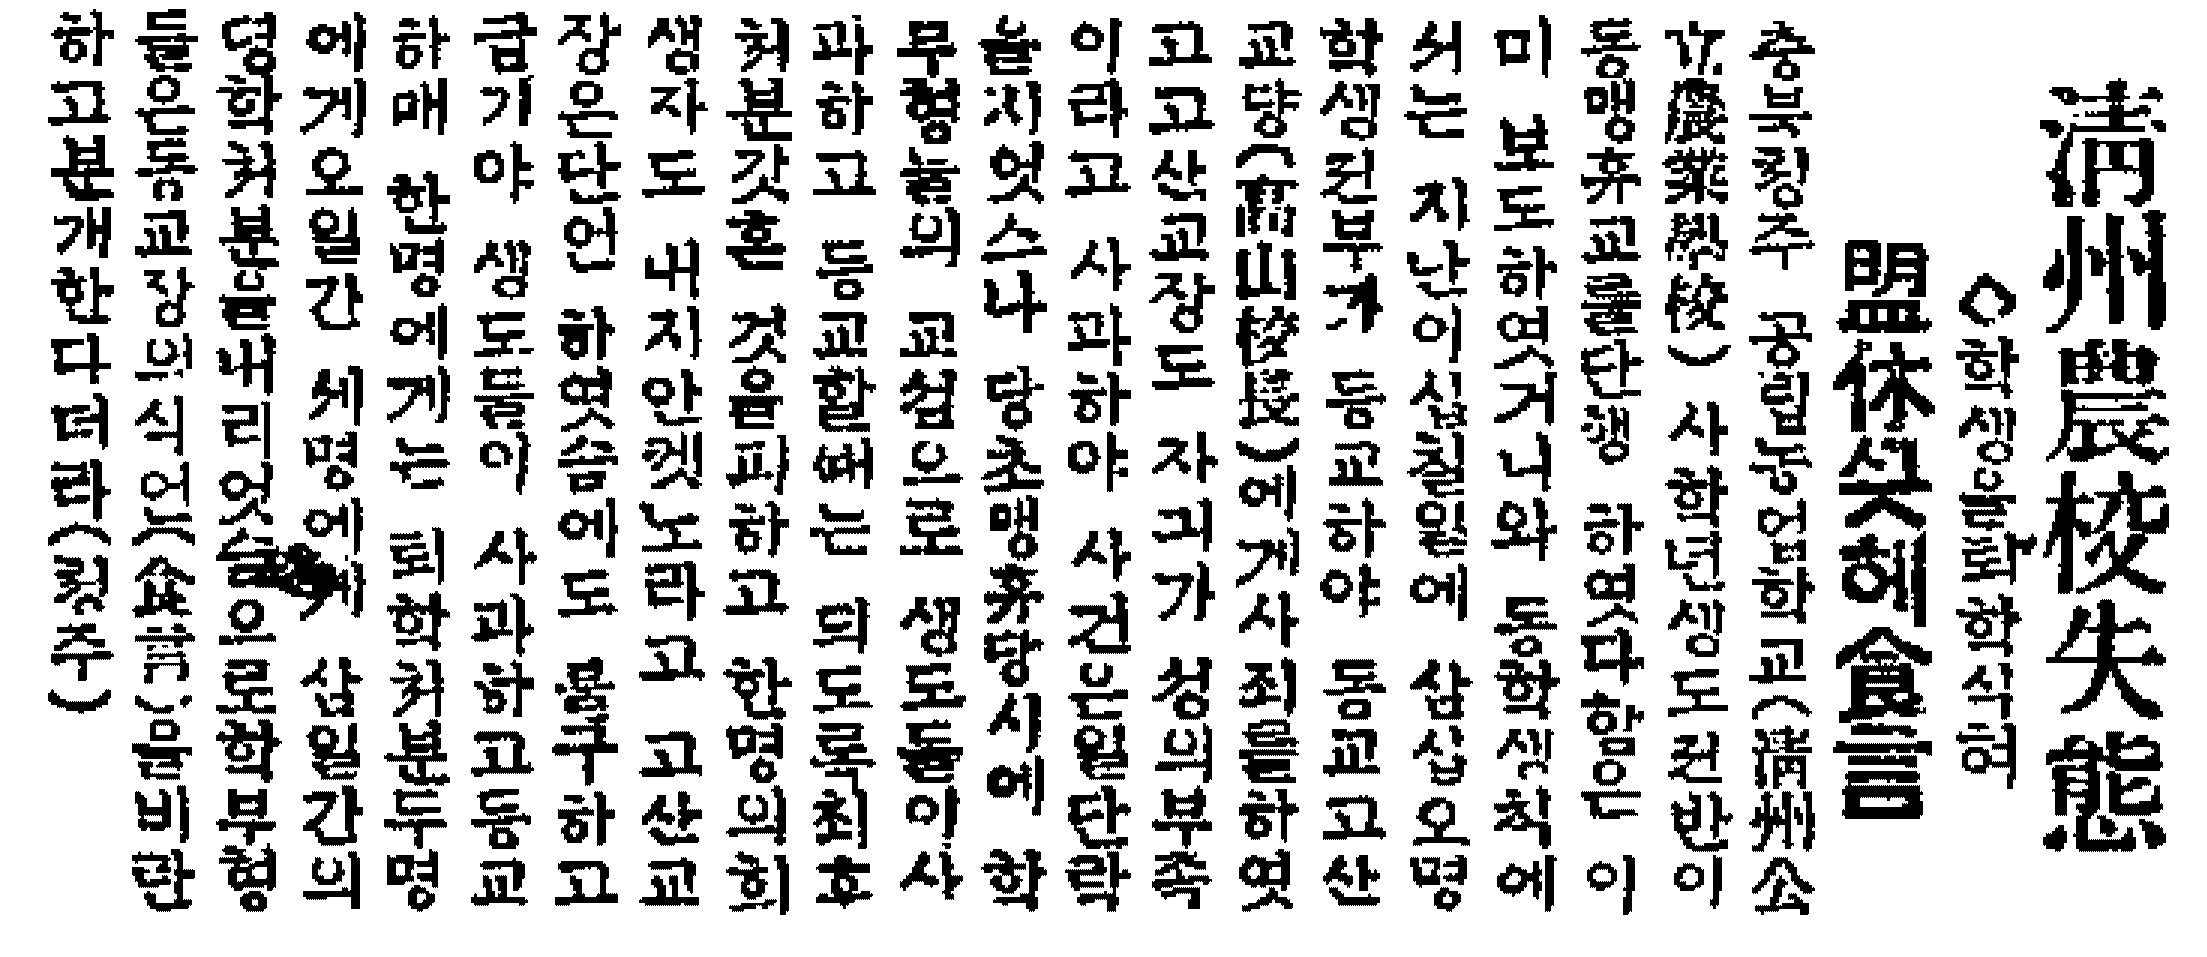 清州農校失態
◇학생들퇴학식힌
盟休섯헤食言
충북청주 공립농업학교(淸州公
立農業學校) 사학년생도전반이
동맹휴교를단행 하엿다함은 이
미 보도하엿거니와 동학생측에
서는 지난이십칠일에 삼십오명
학생전부가 등교하야 동교고산
교당(高山校長)에게사죄를하엿
고고산교장도 자긔가 성의부족
이라고 사과하야 사건은일단락
을지엇스나 당초맹휴당시에 학
무형들의 교섭으로 생도들이사
과하고 등교할때는 퇴도록최후
처분갓흔 것을피하고 한명의희
생자도 내지안켓노라고 고산교
장은단언 하엿슴에도 물구하고
급기야 생도들이 사과하고등교
하매 한명에게는 퇴학처분두명
에게오일간 세명에게 삼일간의
뎡학처분을내리엿슴으로학부형
들은동교장의식언(食言)을비난
하고분개한다더라(청주)